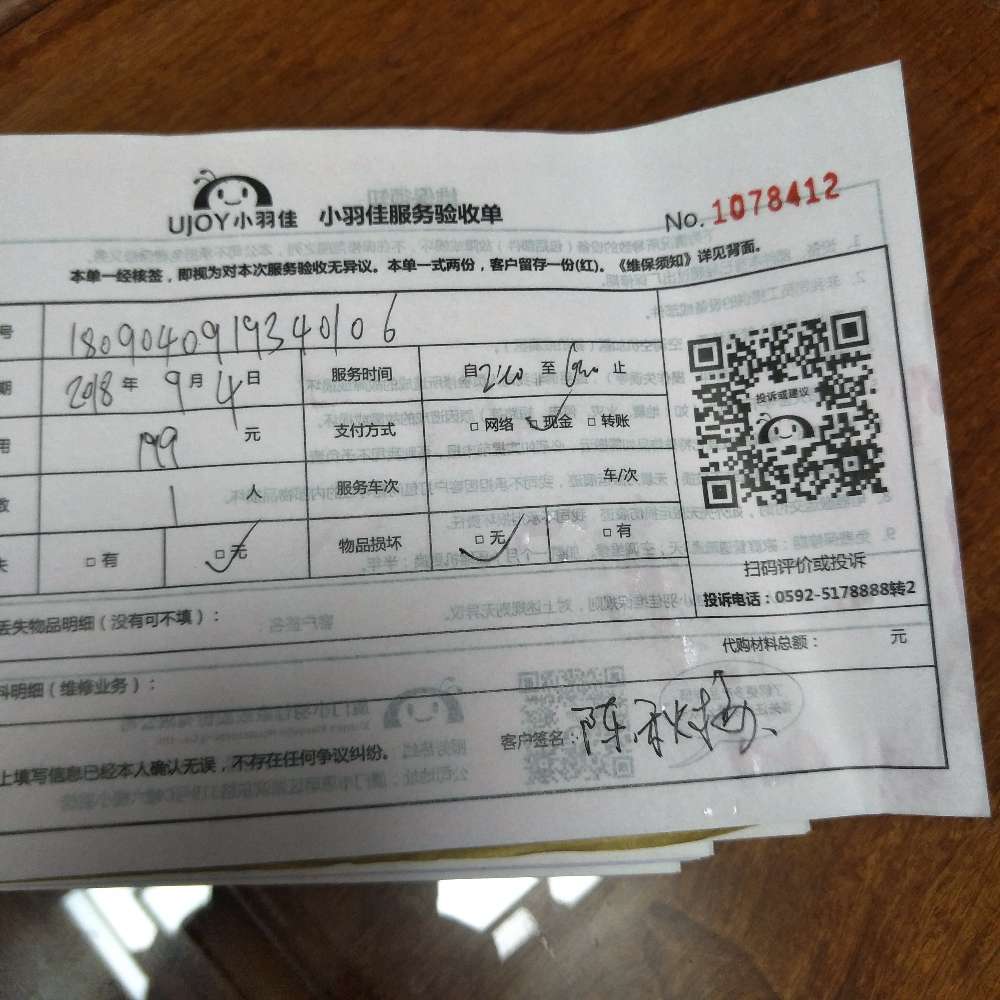 UJOY小羽佳 小羽佳服务验收单 No. 1078412
本单一经核签，即视为对本次服务验收无异议。本单一式两份，客户留存一份(红)。《维保须知》详见背面。
号 1809040919340106
期 2018年 9月 4日 服务时间 自 至 止
用 199 元 支付方式 □ 网络 □ 现金 □ 转账
数 1 人 服务车次 车/次
失 □ 有 □ 无 物品损坏 □ 无 □ 有
投诉或建议
扫码评价或投诉
投诉电话：0592-5178888转2
丢失物品明细（没有可不填）：
代购材料总额： 元
料明细（维修业务）：
上填写信息已经本人确认无误，不存在任何争议纠纷。 客户签名：陈秋梅